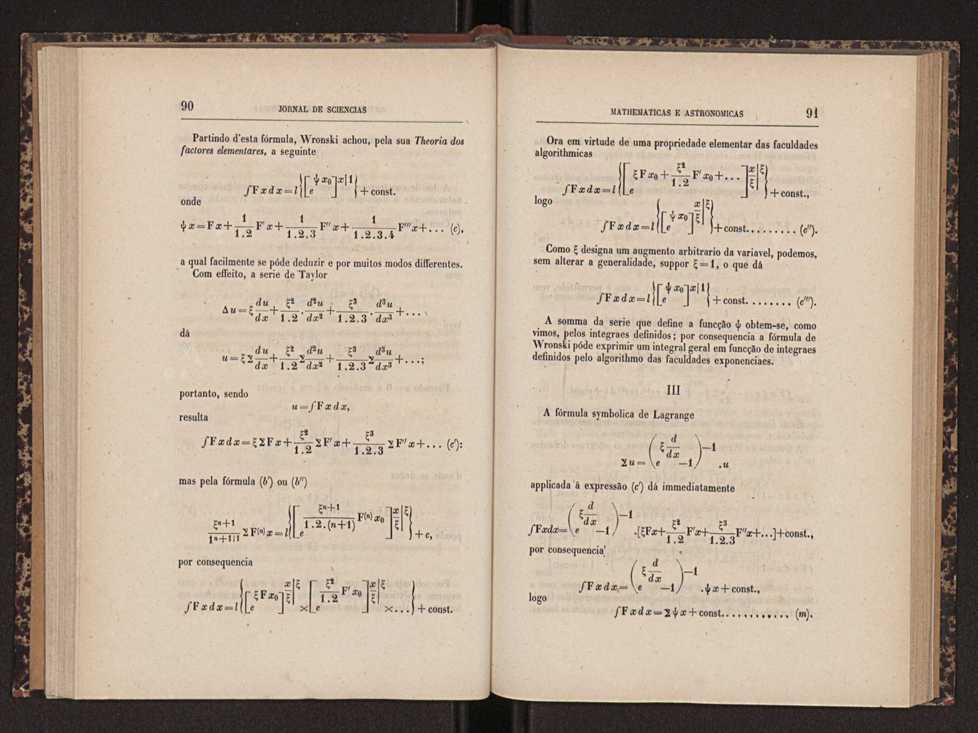 90 JORNAL DE SCIENCIAS
Partindo d'esta fórmula, Wronski achou, pela sua Theoria dos
factores elementares, a seguinte
∫F x d x = l {[e^{ψ x₀}]^{x|1}} + const.
onde
ψ x = F x + 1/1.2 F′ x + 1/1.2.3 F″ x + 1/1.2.3.4 F‴ x + ... (c),
a qual facilmente se póde deduzir e por muitos modos differentes.
Com effeito, a serie de Taylor
Δ u = ξ du/dx + ξ²/1.2 . d²u/dx² + ξ³/1.2.3 . d³u/dx³ + ...
dá
u = ξ Σ du/dx + ξ²/1.2 Σ d²u/dx² + ξ³/1.2.3 Σ d³u/dx³ + ...;
portanto, sendo
u = ∫F x d x,
resulta
∫F x d x = ξ Σ F x + ξ²/1.2 Σ F′ x + ξ³/1.2.3 Σ F″ x + ... (c′):
mas pela fórmula (b′) ou (b″)
ξⁿ⁺¹/1ⁿ⁺¹|¹ Σ F⁽ⁿ⁾ x = l {[e^{ξⁿ⁺¹/1.2.(n+1) F⁽ⁿ⁾ x₀}]^{x/ξ|ξ}} + c,
por consequencia
∫F x d x = l {[e^{ξ F x₀}]^{x/ξ|ξ} × [e^{ξ²/1.2 F′ x₀}]^{x/ξ|ξ} × ...} + const.
MATHEMATICAS E ASTRONOMICAS 91
Ora em virtude de uma propriedade elementar das faculdades
algorithmicas
∫F x d x = l {[e^{ξ F x₀ + ξ²/1.2 F′ x₀ + ...}]^{x/ξ|ξ}} + const.,
logo
∫F x d x = l {[e^{ψ x₀}]^{x/ξ|ξ}} + const. . . . . . . . . (c″).
Como ξ designa um augmento arbitrario da variavel, podemos,
sem alterar a generalidade, suppor ξ = 1, o que dá
∫F x d x = l {[e^{ψ x₀}]^{x|1}} + const. . . . . . . . (c‴).
A somma da serie que define a funcção ψ obtem-se, como
vimos, pelos integraes definidos; por consequencia a fórmula de
Wronski póde exprimir um integral geral em funcção de integraes
definidos pelo algorithmo das faculdades exponenciaes.
III
A fórmula symbolica de Lagrange
Σ u = (e^{ξ d/dx} − 1)^{−1} . u
applicada á expressão (c′) dá immediatamente
∫Fxdx = (e^{ξ d/dx} − 1)^{−1} . [ξFx + ξ²/1.2 F′x + ξ³/1.2.3 F″x + ...] + const.,
por consequencia
∫F x d x = (e^{ξ d/dx} − 1)^{−1} . ψ x + const.,
logo
∫F x d x = Σ ψ x + const. . . . . . . . . . . . (m).